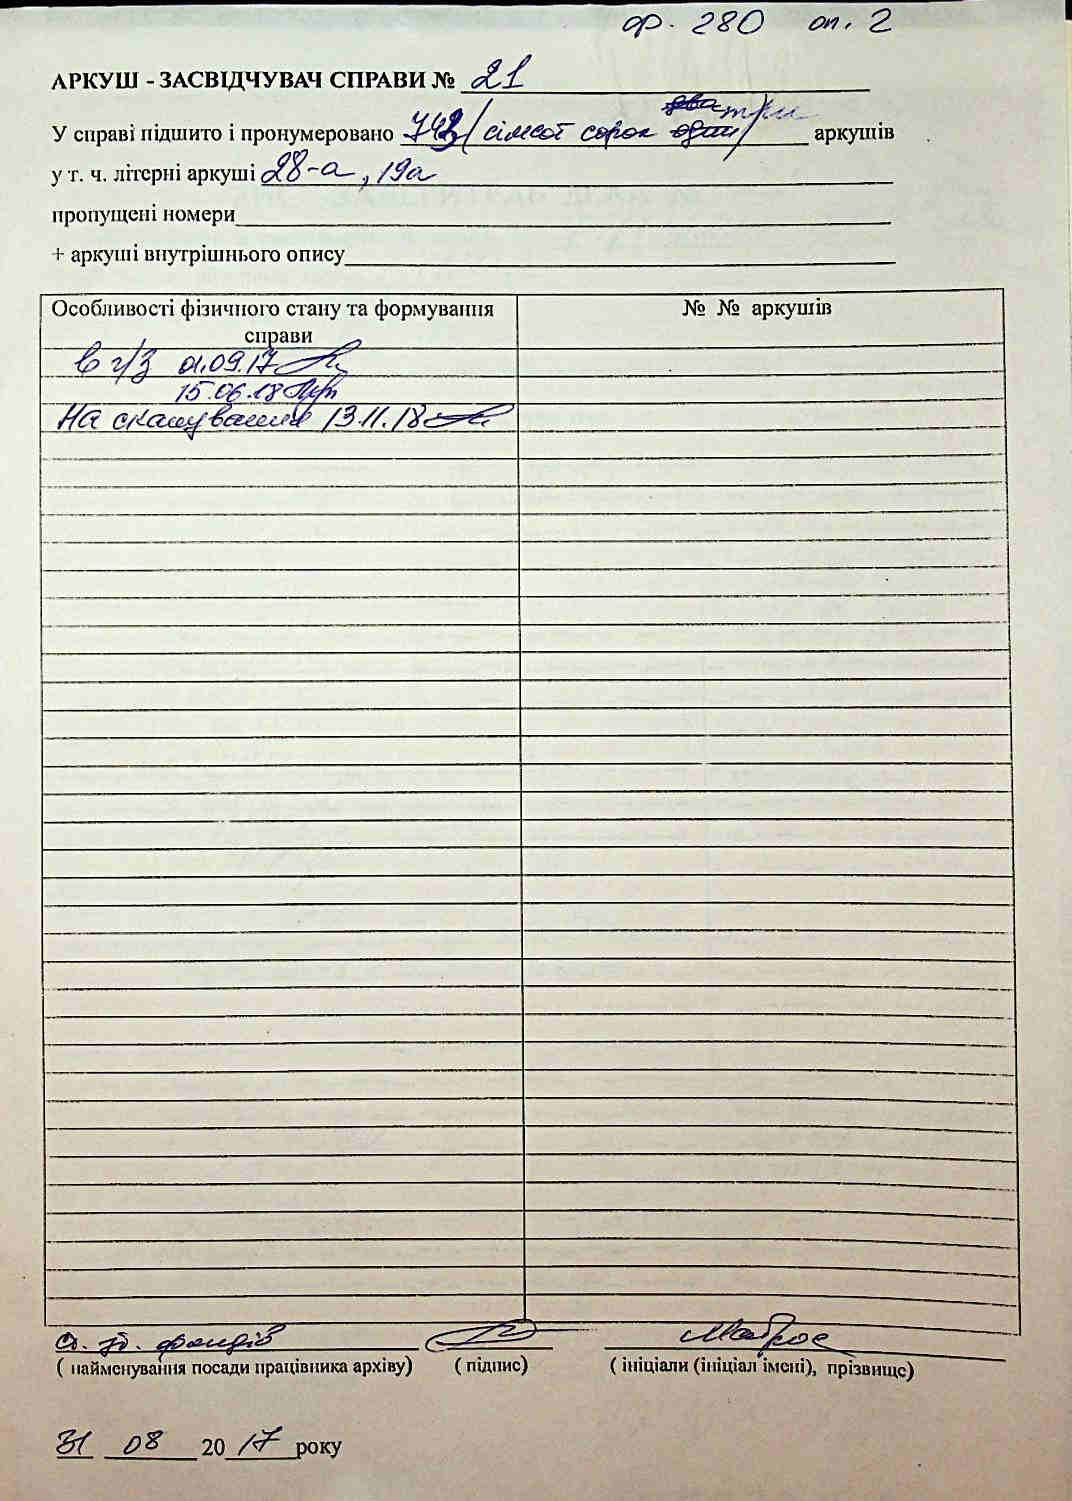 ф. 280 оп. 2
АРКУШ - ЗАСВІДЧУВАЧ СПРАВИ № 21
У справі підшито і пронумеровано 743 (сімсот сорок один два три) аркушів
у т. ч. літерні аркуші 28-а, 19а
пропущені номери
+ аркуші внутрішнього опису
Особливості фізичного стану та формування справи
№ № аркушів
В ч/з 01.09.17
15.06.18
На сканування 13.11.18
фондів
( найменування посади працівника архіву) ( підпис) ( ініціали (ініціал імені), прізвище)
31 08 2017 року